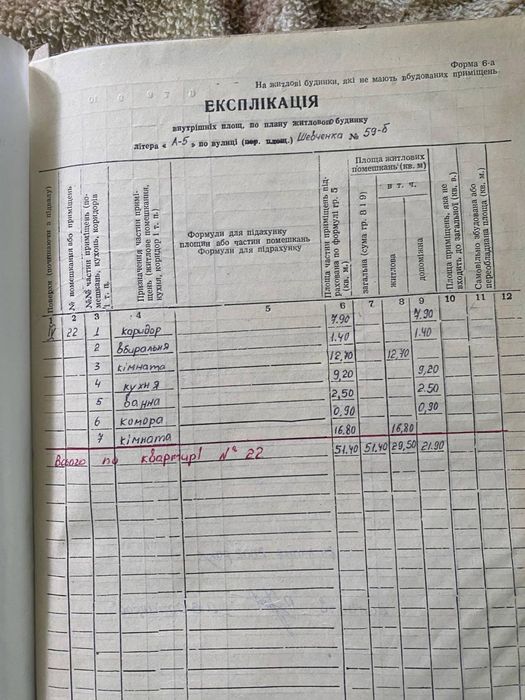 Форма 6-а
На житлові будинки, які не мають вбудованих приміщень
ЕКСПЛІКАЦІЯ
внутрішніх площ, по плану житлового будинку
літера « А-5 » по вулиці (пер. площ.) Шевченка № 59-б
Поверхи (починаючи з підвалу)
№ помешкання або приміщень
№№ частин приміщень (помешкань, кухонь, коридорів і т. п.
Призначення частин приміщень (житлове помешкання, кухня, коридор і т. п.)
Формули для підахунку
площин або частин помешкань
Формули для підрахунку
Площа частин приміщень підрахована по формулі гр. 5 (кв. м.)
Площа житлових помешкань (кв. м)
загальна (сума гр. 8 і 9)
в т. ч.
житлова
допоміжна
Площа приміщень, яка не входить до загальної (кв. в.)
Самовільно збудована або переобладнана площа (кв. м.)
2 3 4 5 6 7 8 9 10 11 12
22 1 коридор 7.90 7.90
2 вбиральня 1.40 1.40
3 кімната 12,70 12,70
4 кухня 9,20 9,20
5 ванна 2,50 2.50
6 комора 0,90 0,90
7 кімната 16.80 16,80
Всього по квартирі № 22 51.40 51.40 29,50 21.90